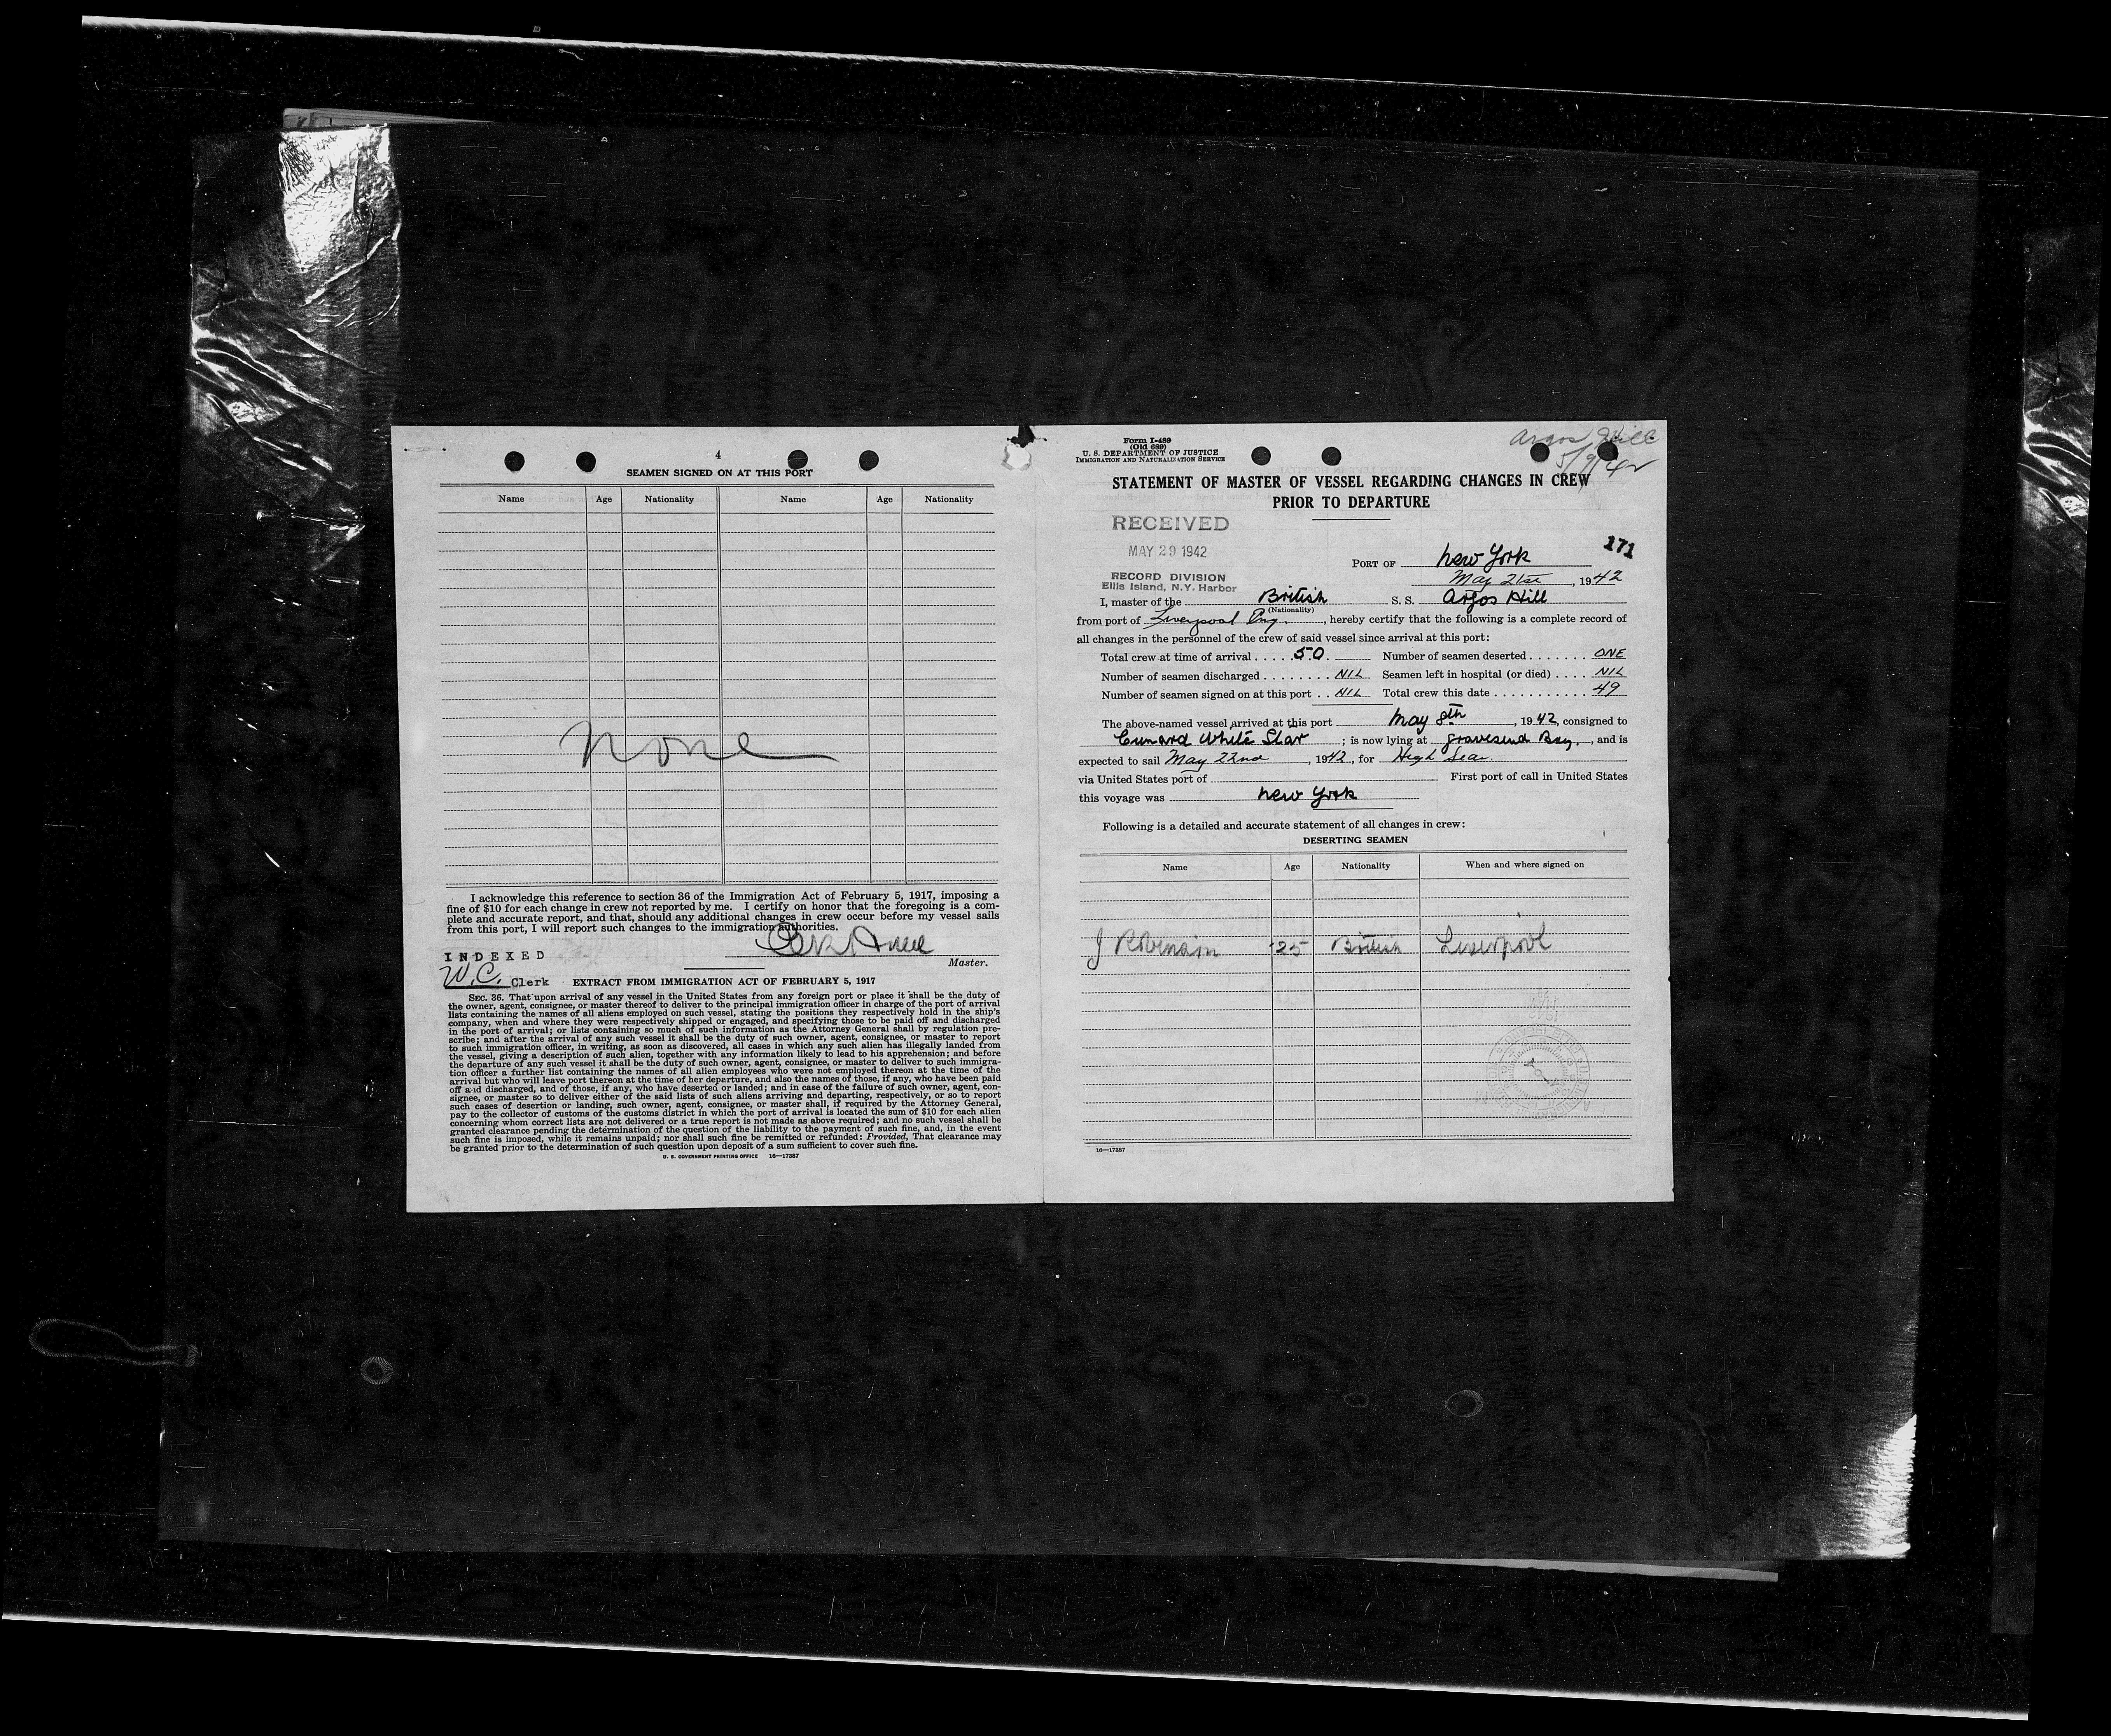 4
SEAMEN SIGNED ON AT THIS PORT
Name Age Nationality Name Age Nationality
None
I acknowledge this reference to section 36 of the Immigration Act of February 5, 1917, imposing a
fine of $10 for each change in crew not reported by me. I certify on honor that the foregoing is a com-
plete and accurate report, and that, should any additional changes in crew occur before my vessel sails
from this port, I will report such changes to the immigration authorities.
INDEXED
Master.
W.C. Clerk
EXTRACT FROM IMMIGRATION ACT OF FEBRUARY 5, 1917
SEC. 36. That upon arrival of any vessel in the United States from any foreign port or place it shall be the duty of
the owner, agent, consignee, or master thereof to deliver to the principal immigration officer in charge of the port of arrival
lists containing the names of all aliens employed on such vessel, stating the positions they respectively hold in the ship's
company, when and where they were respectively shipped or engaged, and specifying those to be paid off and discharged
in the port of arrival; or lists containing so much of such information as the Attorney General shall by regulation pre-
scribe; and after the arrival of any such vessel it shall be the duty of such owner, agent, consignee, or master to report
to such immigration officer, in writing, as soon as discovered, all cases in which any such alien has illegally landed from
the vessel, giving a description of such alien, together with any information likely to lead to his apprehension; and before
the departure of any such vessel it shall be the duty of such owner, agent, consignee, or master to deliver to such immigra-
tion officer a further list containing the names of all alien employees who were not employed thereon at the time of the
arrival but who will leave port thereon at the time of her departure, and also the names of those, if any, who have been paid
off and discharged, and of those, if any, who have deserted or landed; and in case of the failure of such owner, agent, con-
signee, or master so to deliver either of the said lists of such aliens arriving and departing, respectively, or so to report
such cases of desertion or landing, such owner, agent, consignee, or master shall, if required by the Attorney General,
pay to the collector of customs of the customs district in which the port of arrival is located the sum of $10 for each alien
concerning whom correct lists are not delivered or a true report is not made as above required; and no such vessel shall be
granted clearance pending the determination of the question of the liability to the payment of such fine, and, in the event
such fine is imposed, while it remains unpaid; nor shall such fine be remitted or refunded: Provided, That clearance may
be granted prior to the determination of such question upon deposit of a sum sufficient to cover such fine.
U. S. GOVERNMENT PRINTING OFFICE 16—17387
Form I-489
(Old 689)
U. S. DEPARTMENT OF JUSTICE
IMMIGRATION AND NATURALIZATION SERVICE
Argos Hill
5/9/42
STATEMENT OF MASTER OF VESSEL REGARDING CHANGES IN CREW
PRIOR TO DEPARTURE
RECEIVED
MAY 29 1942
RECORD DIVISION
Ellis Island, N.Y. Harbor
171
PORT OF New York
May 21st, 1942
I, master of the British S. S. Argos Hill
(Nationality)
from port of Liverpool Eng., hereby certify that the following is a complete record of
all changes in the personnel of the crew of said vessel since arrival at this port:
Total crew at time of arrival . . . . . 50. Number of seamen deserted . . . . . . . ONE
Number of seamen discharged . . . . . . . . NIL Seamen left in hospital (or died) . . . . NIL
Number of seamen signed on at this port . . NIL Total crew this date . . . . . . . . . . . 49
The above-named vessel arrived at this port May 8th, 1942, consigned to
Cunard White Star ; is now lying at Gravesend Bay, , and is
expected to sail May 22nd, 1942, for High Seas.
via United States port of First port of call in United States
this voyage was New York
Following is a detailed and accurate statement of all changes in crew:
DESERTING SEAMEN
Name Age Nationality When and where signed on
J Robinson 25 British Liverpool
16—17387